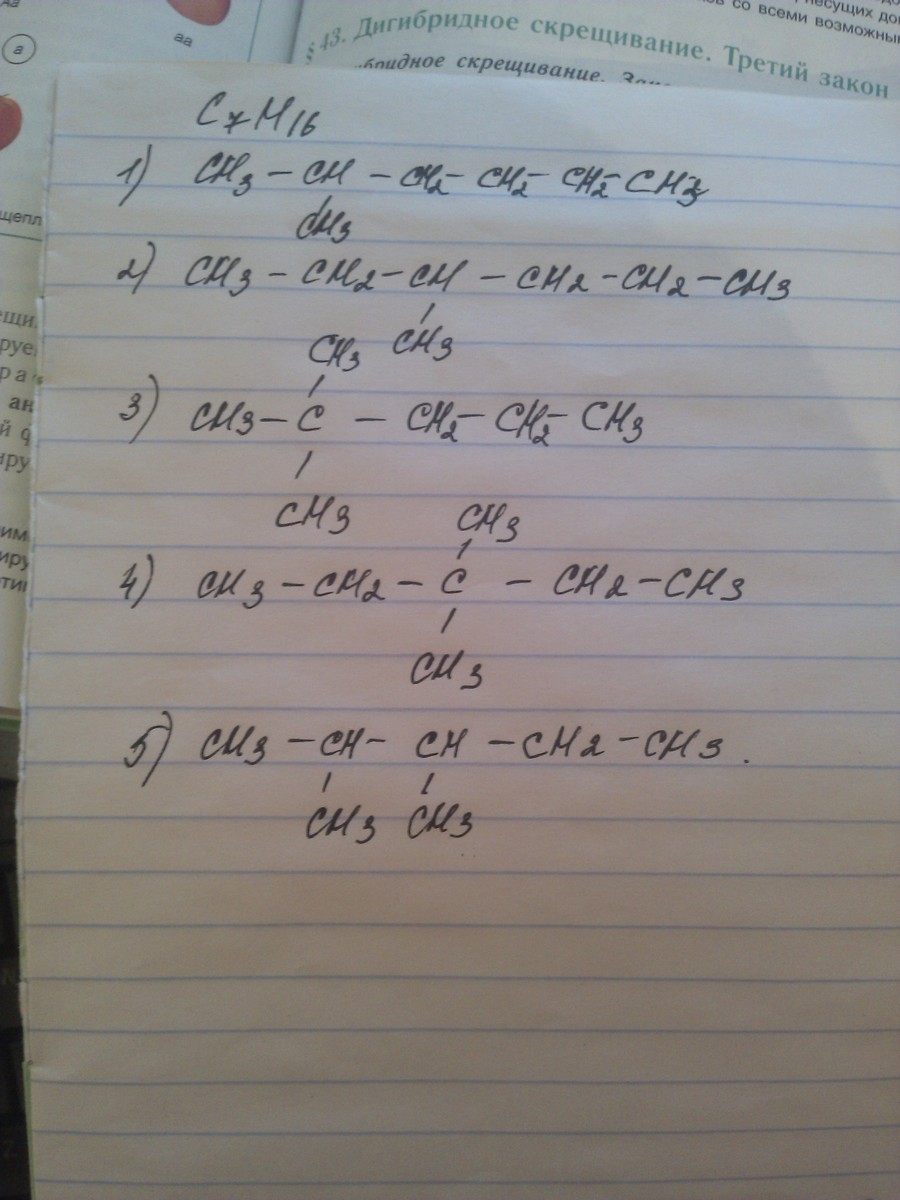 Аа
а
аа
несущих до
ов со всеми возможны
§ 43. Дигибридное скрещивание. Третий закон
бридное скрещивание. Зако
щепл
C7H16
1) CH3 – CH – CH2 – CH2 – CH2 – CH3
CH3
2) CH3 – CH2 – CH – CH2 – CH2 – CH3
CH3 CH3
3) CH3 – C – CH2 – CH2 – CH3
CH3 CH3
4) CH3 – CH2 – C – CH2 – CH3
CH3
5) CH3 – CH – CH – CH2 – CH3 .
CH3 CH3